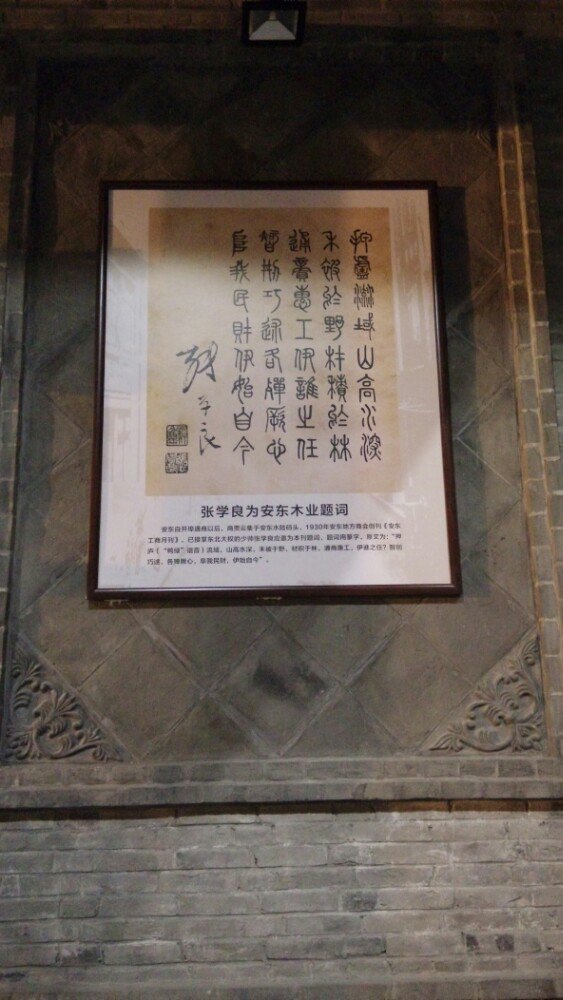 押盧流域山高水深
禾被於野材積於林
通商惠工伊誰之任
智創巧述各殫厥心
阜我民財伊始自今
張學良
张学良为安东木业题词
安东自开埠通商以后，商贾云集于安东水陆码头，1930年安东地方商会创刊《安东
工商月刊》，已接掌东北大权的少帅张学良应邀为本刊题词，题词用篆字，原文为：“押
庐（“鸭绿”谐音）流域，山高水深，禾被于野，材积于林，通商惠工，伊谁之任？智创
巧述，各殚厥心，阜我民财，伊始自今”。